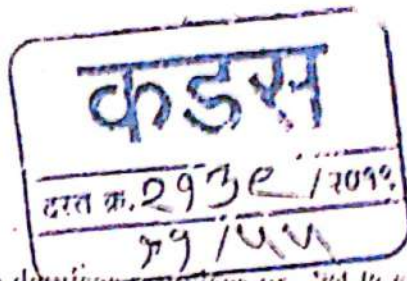 कडस
दस्त क्र. २१३९ /२०१९
५१ /५५